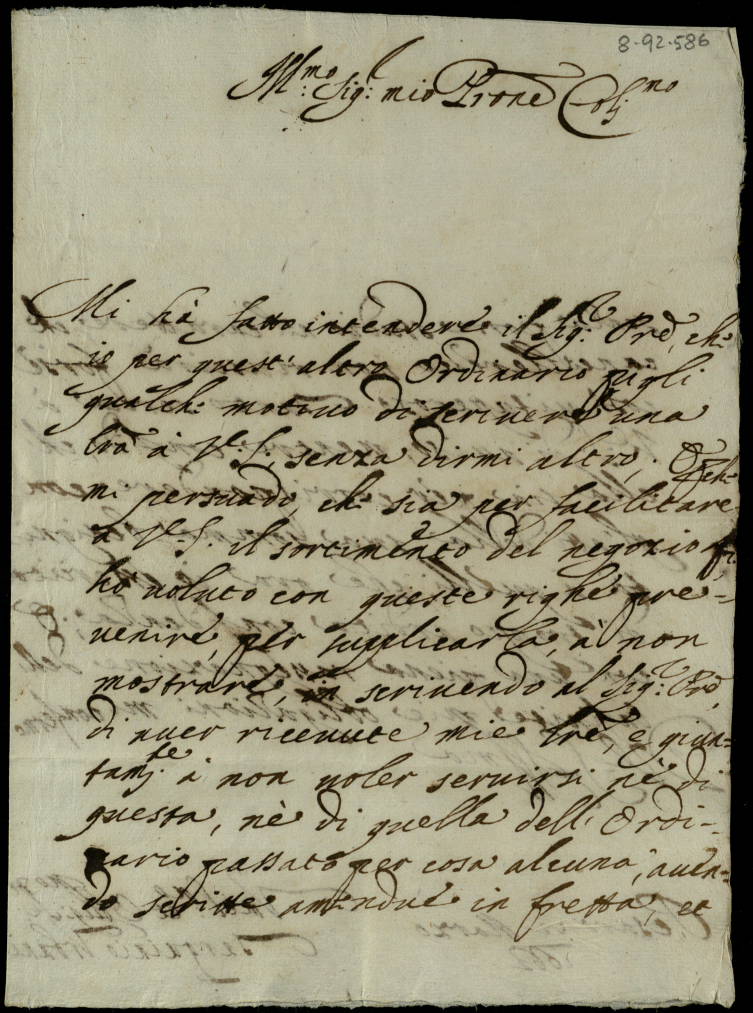 8-92-586
Ill:mo Sig: mio Prone Col:mo
Mi hà fatto intendere il Sig:r Prê, ch:
io per quest'altro Ordinario pigli
qualch: motivo di scriver una
lrã à V.S. senza dirmi altro,
mi persuado, ch: sia per facilitare
à V.S. il sortimento del negozio,
hò voluto con queste righe pre=
venire, per supplicarla, à non
mostrare, in scrivendo al Sig:r Prê,
di aver ricevute mie lrẽ, e giun=
tam:te à non voler servirsi nè di
questa, nè di quella dell'Ordi=
nario passato per cosa alcuna, aven=
do scritte amendue in fretta, et